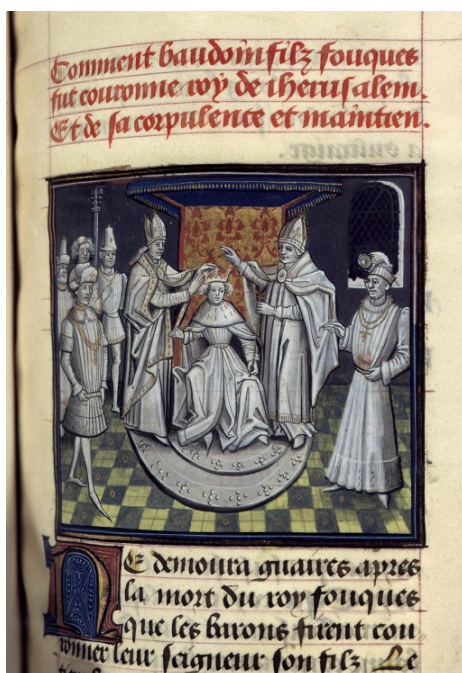 Comment baudoin filz fouques
fut couronne roy de iherusalem.
Et de sa corpulence et maintien.
NE demoura guaires apres
la mort du roy fouques
que les barons firent cou
ronner leur seigneur son filz Le